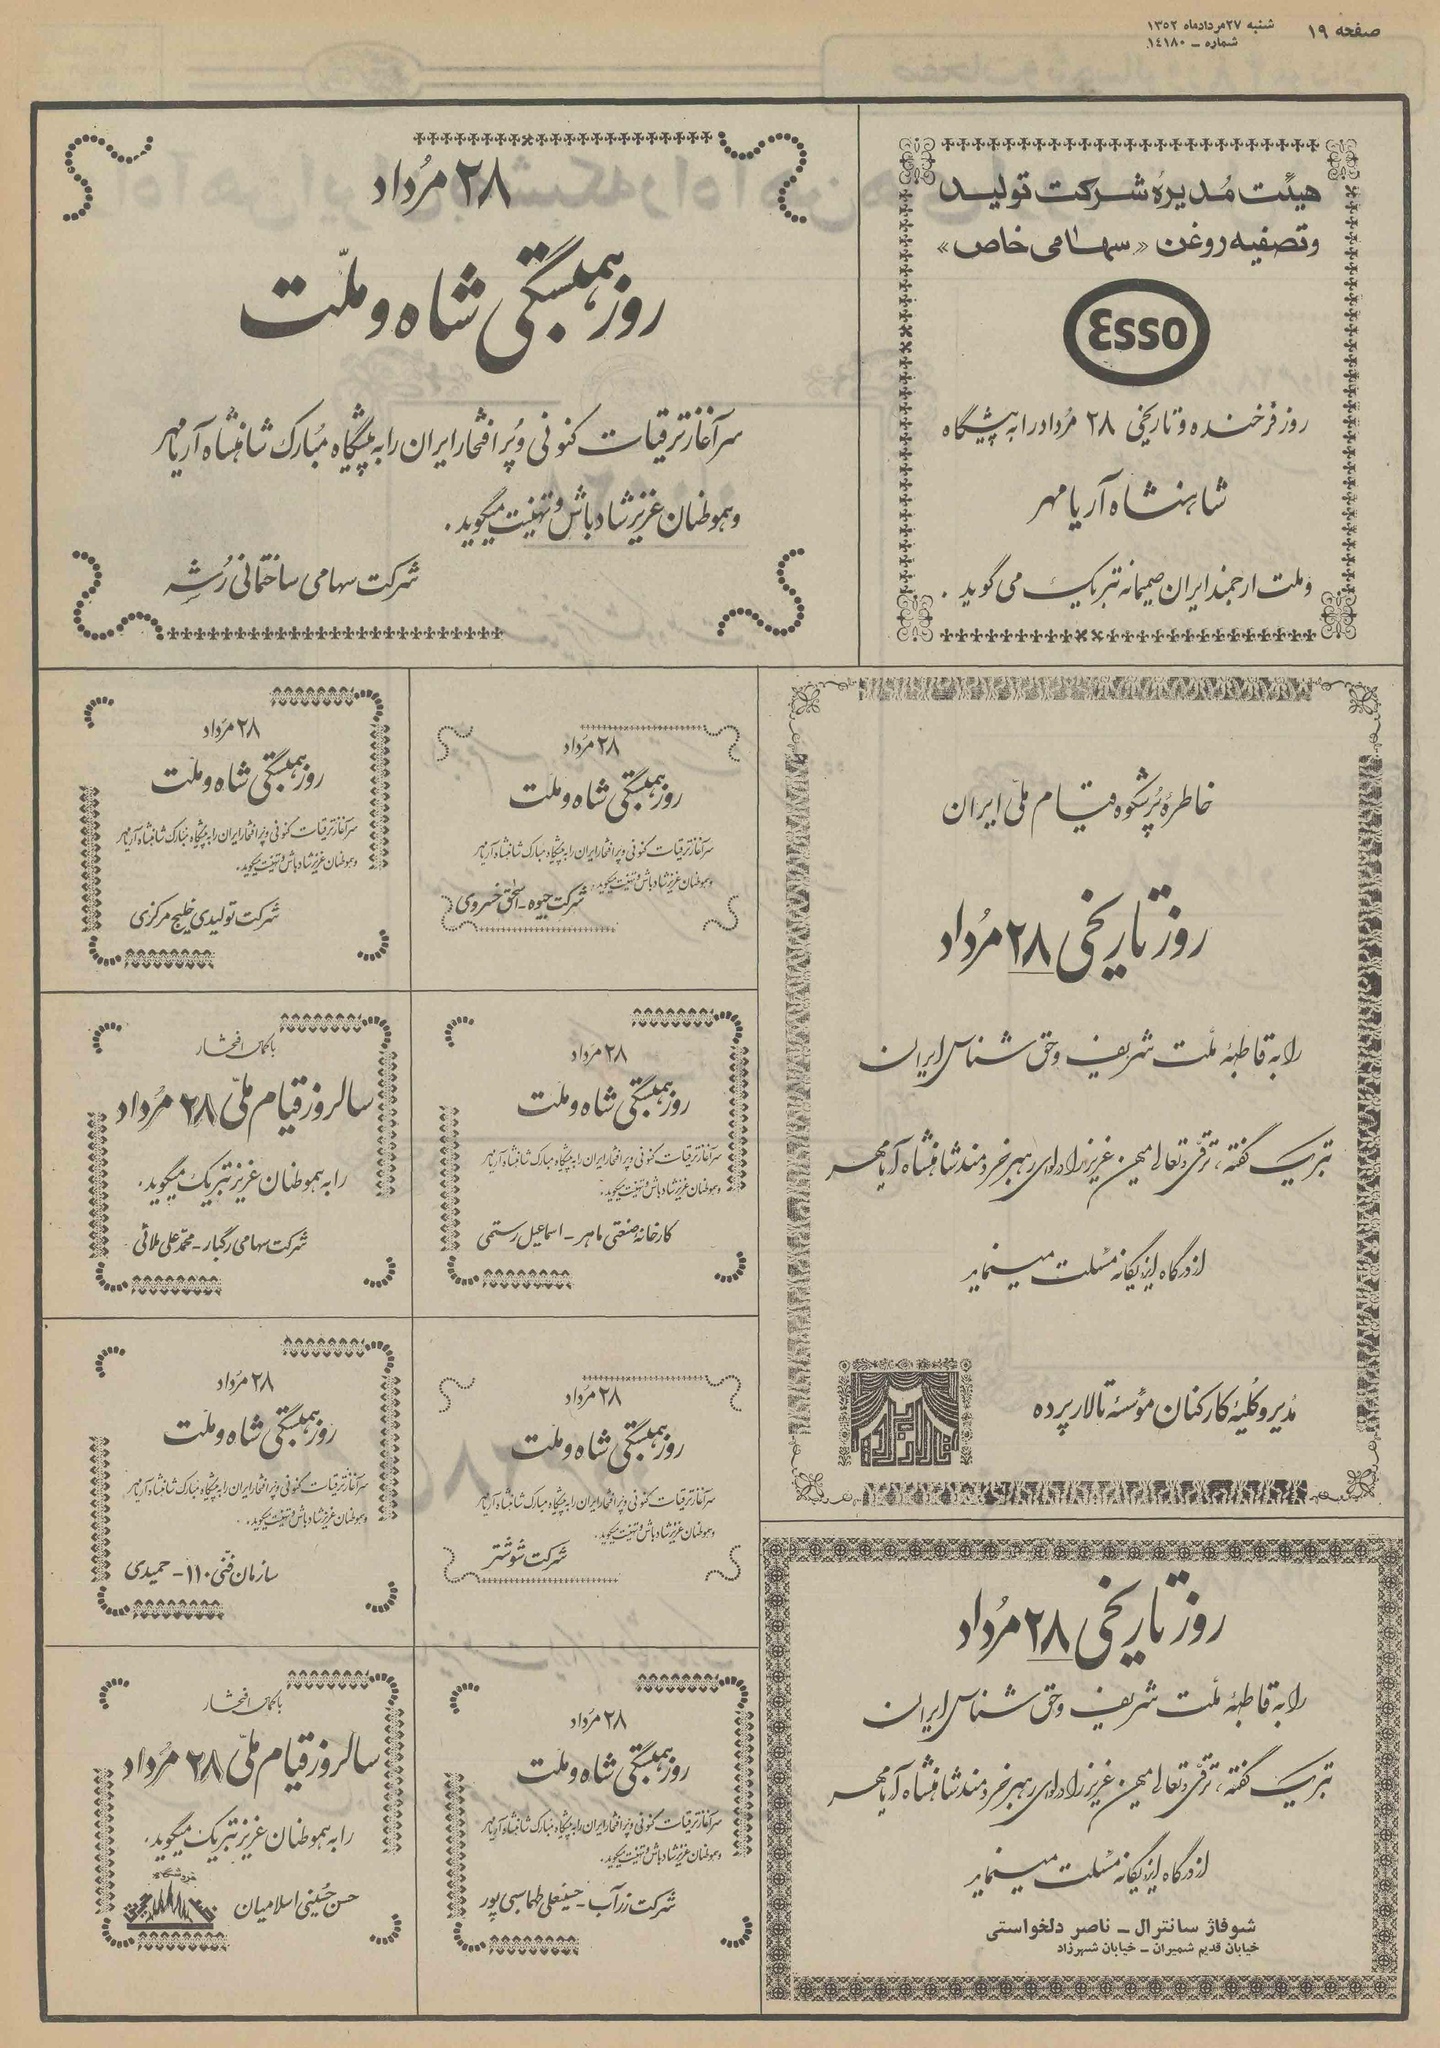 صفحه ۱۹
شنبه ۲۷ مردادماه ۱۳۵۲
شماره ـ ۱۴۱۸۰
هیئت مدیره شرکت تولید
وتصفیه روغن «سهامی خاص»
Esso
روز فرخنده و تاریخی ۲۸ مرداد را به پیشگاه
شاهنشاه آریامهر
و ملت ارجمند ایران صمیمانه تبریک می گوید .
۲۸ مرداد
روز همبستگی شاه و ملت
سرآغاز ترقیات کنونی و پر افتخار ایران را به پیشگاه مبارک شاهنشاه آریامهر
و هموطنان عزیز شادباش و تهنیت میگوید .
شرکت سهامی ساختمانی
خاطره پرشکوه قیام ملی ایران
روز تاریخی ۲۸ مرداد
را به قاطبه ملت شریف و حق شناس ایران
تبریک گفته ، ترقی و تعالی میهن عزیز را در لوای رهبر خردمند شاهنشاه آریامهر
از درگاه ایزد یگانه مسئلت مینماید
مدیر و کلیه کارکنان مؤسسه تالار پرده
تالار پرده
روز تاریخی ۲۸ مرداد
را به قاطبه ملت شریف و حق شناس ایران
تبریک گفته ، ترقی و تعالی میهن عزیز را در لوای رهبر خردمند شاهنشاه آریامهر
از درگاه ایزد یگانه مسئلت مینماید
شوفاژ سانترال ـ ناصر دلخواستی
خیابان قدیم شمیران ـ خیابان شهرزاد
۲۸ مرداد
روز همبستگی شاه و ملت
سرآغاز ترقیات کنونی و پر افتخار ایران را به پیشگاه مبارک شاهنشاه آریامهر
و هموطنان عزیز شادباش و تهنیت میگوید .
شرکت جیوه ـ اسحق خسروی
۲۸ مرداد
روز همبستگی شاه و ملت
سرآغاز ترقیات کنونی و پر افتخار ایران را به پیشگاه مبارک شاهنشاه آریامهر
و هموطنان عزیز شادباش و تهنیت میگوید .
شرکت تولیدی خلیج مرکزی
۲۸ مرداد
روز همبستگی شاه و ملت
سرآغاز ترقیات کنونی و پر افتخار ایران را به پیشگاه مبارک شاهنشاه آریامهر
و هموطنان عزیز شادباش و تهنیت میگوید .
کارخانه صنعتی ماهر ـ اسماعیل رستمی
با کمال افتخار
سالروز قیام ملی ۲۸ مرداد
را به هموطنان عزیز تبریک میگوید .
شرکت سهامی رگبار ـ محمد علی طلائی
۲۸ مرداد
روز همبستگی شاه و ملت
سرآغاز ترقیات کنونی و پر افتخار ایران را به پیشگاه مبارک شاهنشاه آریامهر
و هموطنان عزیز شادباش و تهنیت میگوید .
شرکت شوشتر
۲۸ مرداد
روز همبستگی شاه و ملت
سرآغاز ترقیات کنونی و پر افتخار ایران را به پیشگاه مبارک شاهنشاه آریامهر
و هموطنان عزیز شادباش و تهنیت میگوید .
سازمان فنی ۱۱۰ ـ حمیدی
۲۸ مرداد
روز همبستگی شاه و ملت
سرآغاز ترقیات کنونی و پر افتخار ایران را به پیشگاه مبارک شاهنشاه آریامهر
و هموطنان عزیز شادباش و تهنیت میگوید .
شرکت زرآب ـ حسینعلی طهماسبی پور
با کمال افتخار
سالروز قیام ملی ۲۸ مرداد
را به هموطنان عزیز تبریک میگوید .
فروشگاه
حسن حسینی اسلامیان